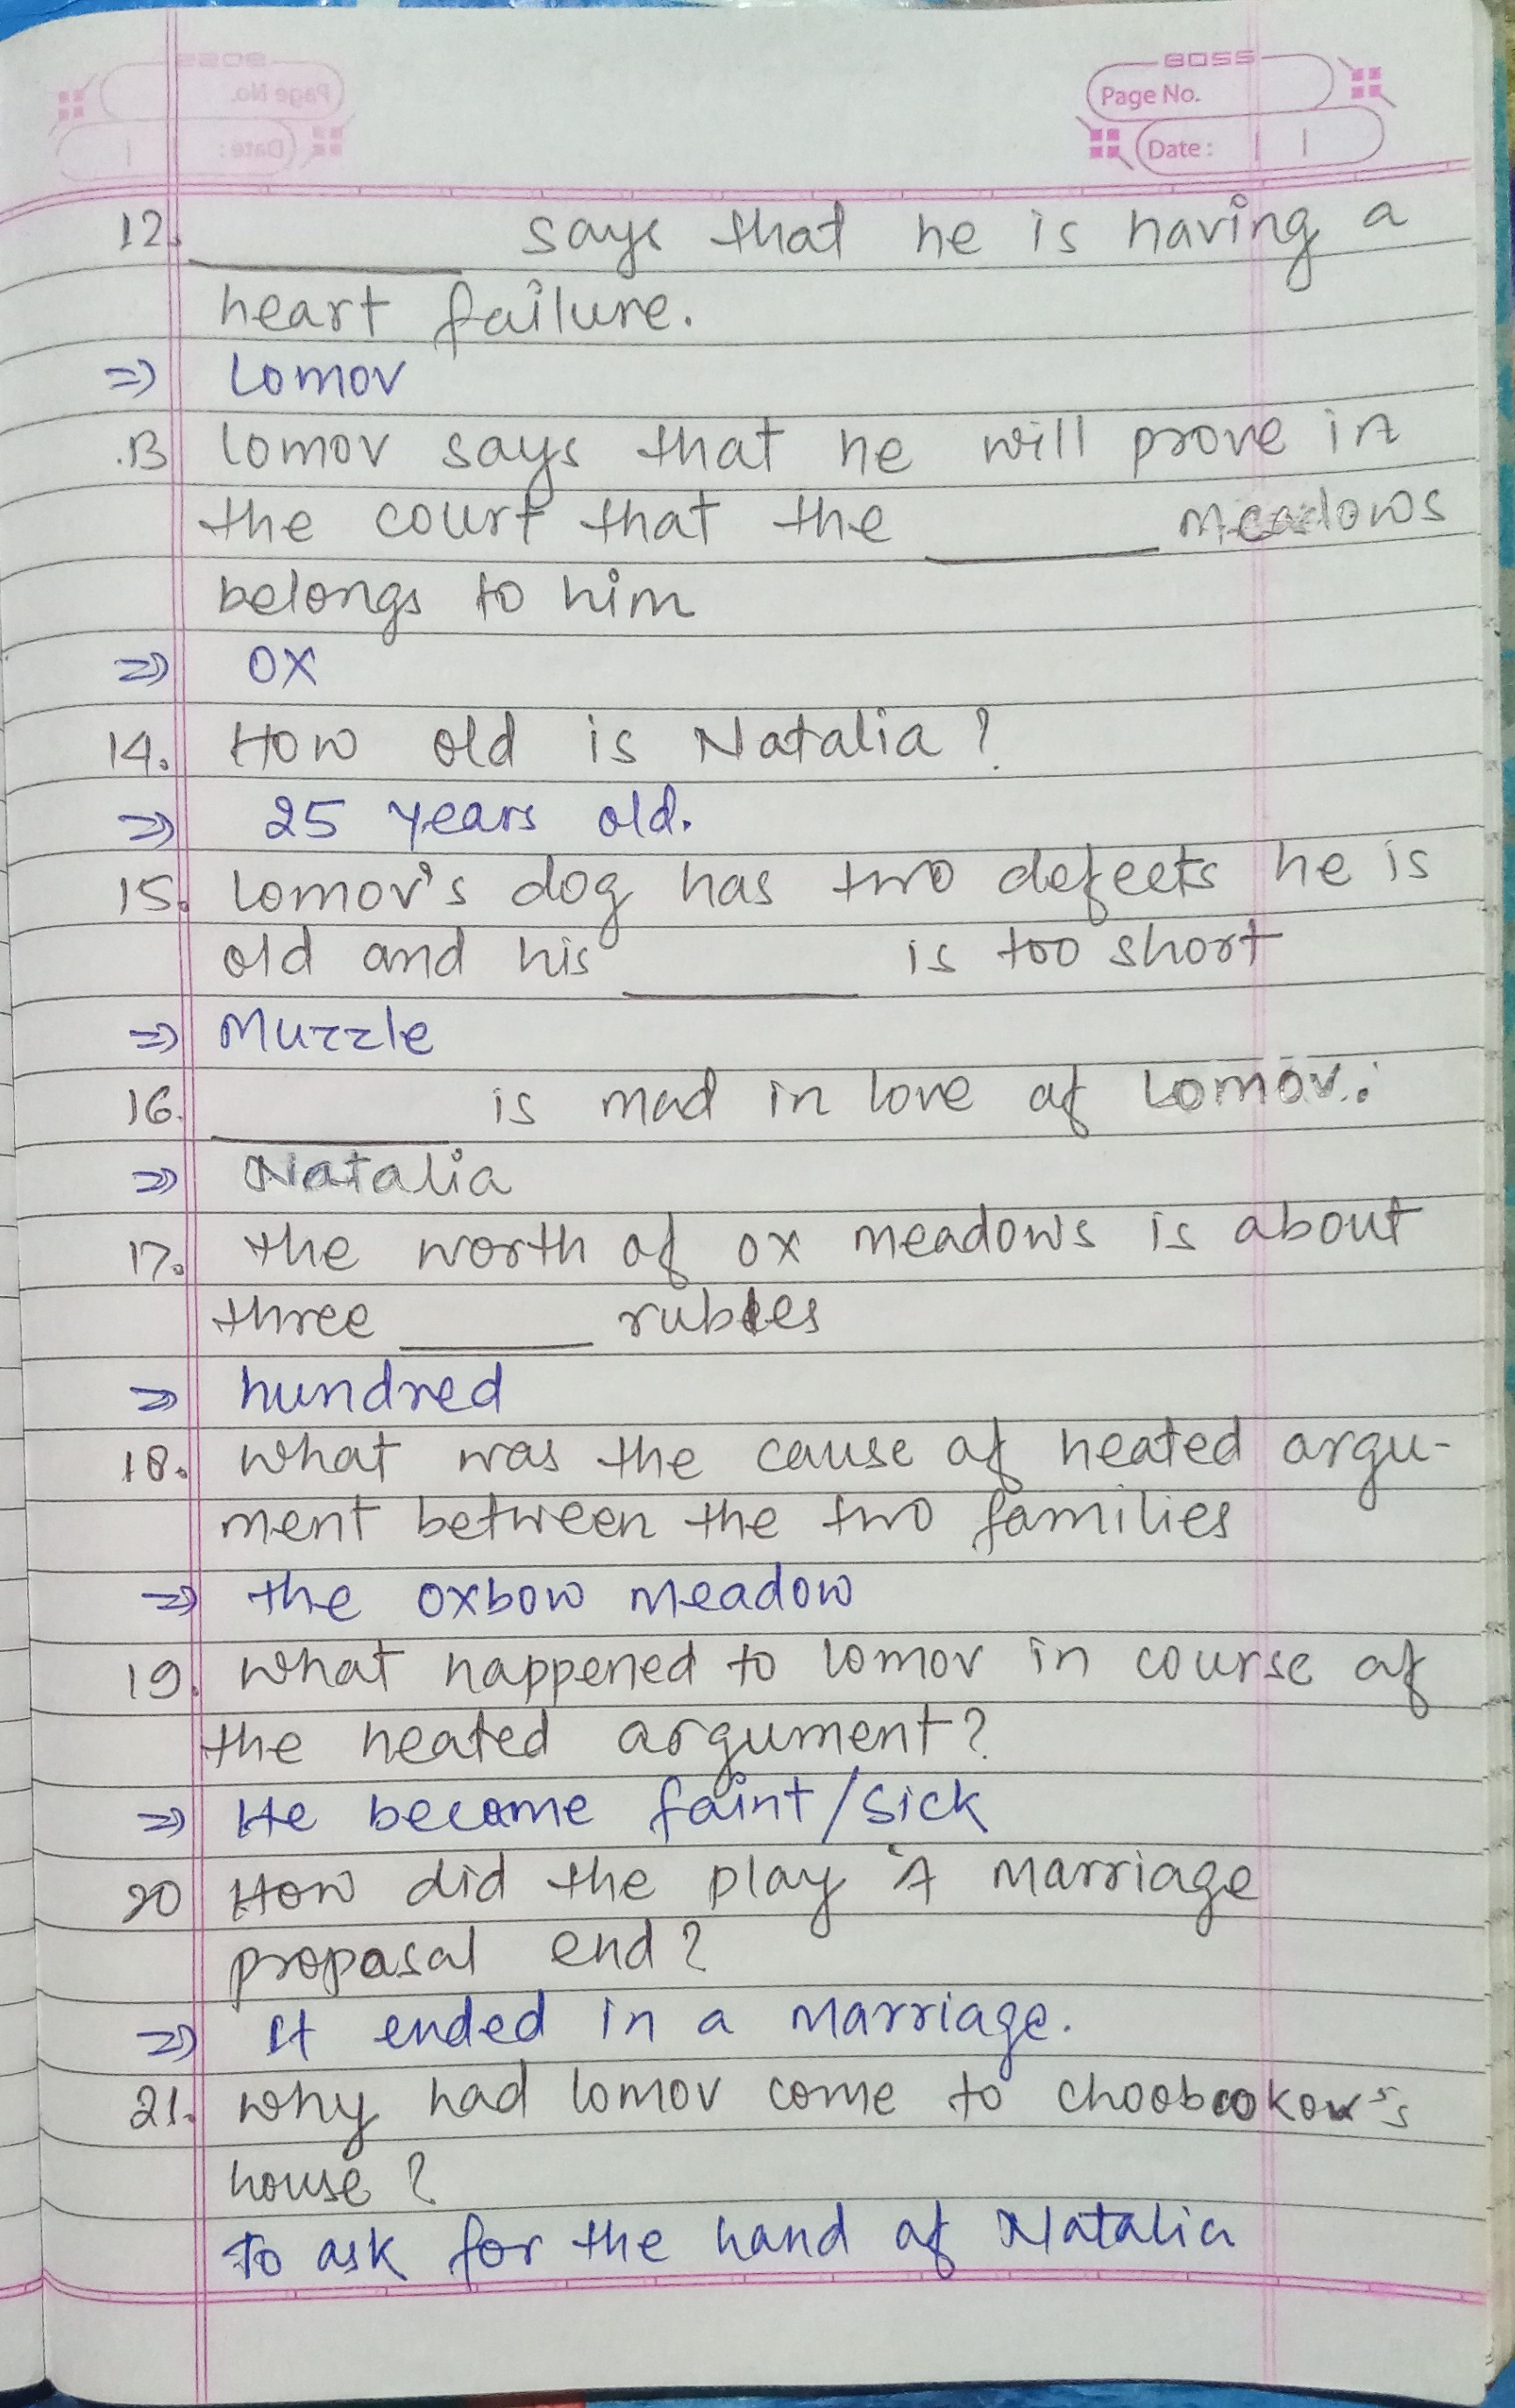 BOSS
Page No.
Date :
12. ______ says that he is having a
heart failure.
=> Lomov
.13 Lomov says that he will prove in
the court that the ______ meadows
belongs to him
=> OX
14. How old is Natalia ?
=> 25 years old.
15. Lomov's dog has two defects he is
old and his ______ is too short
=> Muzzle
16. ______ is mad in love of Lomov.
=> Natalia
17. the worth of ox meadows is about
three ______ rubles
=> hundred
18. what was the cause of heated argu-
ment between the two families
=> the oxbow meadow
19. what happened to lomov in course of
the heated argument?
=> He become faint/sick
20 How did the play 'A Marriage
proposal end ?
=> It ended in a marriage.
21. why had lomov come to choobookow's
house ?
To ask for the hand of Natalia